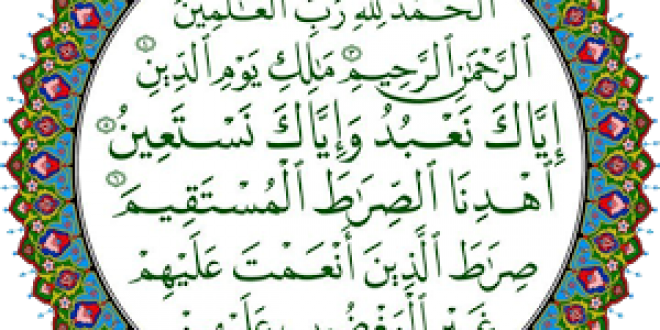 ٱلْحَمْدُ لِلَّهِ رَبِّ ٱلْعَـٰلَمِينَ
ٱلرَّحْمَـٰنِ ٱلرَّحِيمِ ۝٣ مَـٰلِكِ يَوْمِ ٱلدِّينِ ۝٤
إِيَّاكَ نَعْبُدُ وَإِيَّاكَ نَسْتَعِينُ ۝٥
ٱهْدِنَا ٱلصِّرَٰطَ ٱلْمُسْتَقِيمَ ۝٦
صِرَٰطَ ٱلَّذِينَ أَنْعَمْتَ عَلَيْهِمْ
غَيْرِ ٱلْمَغْضُوبِ عَلَيْهِمْ